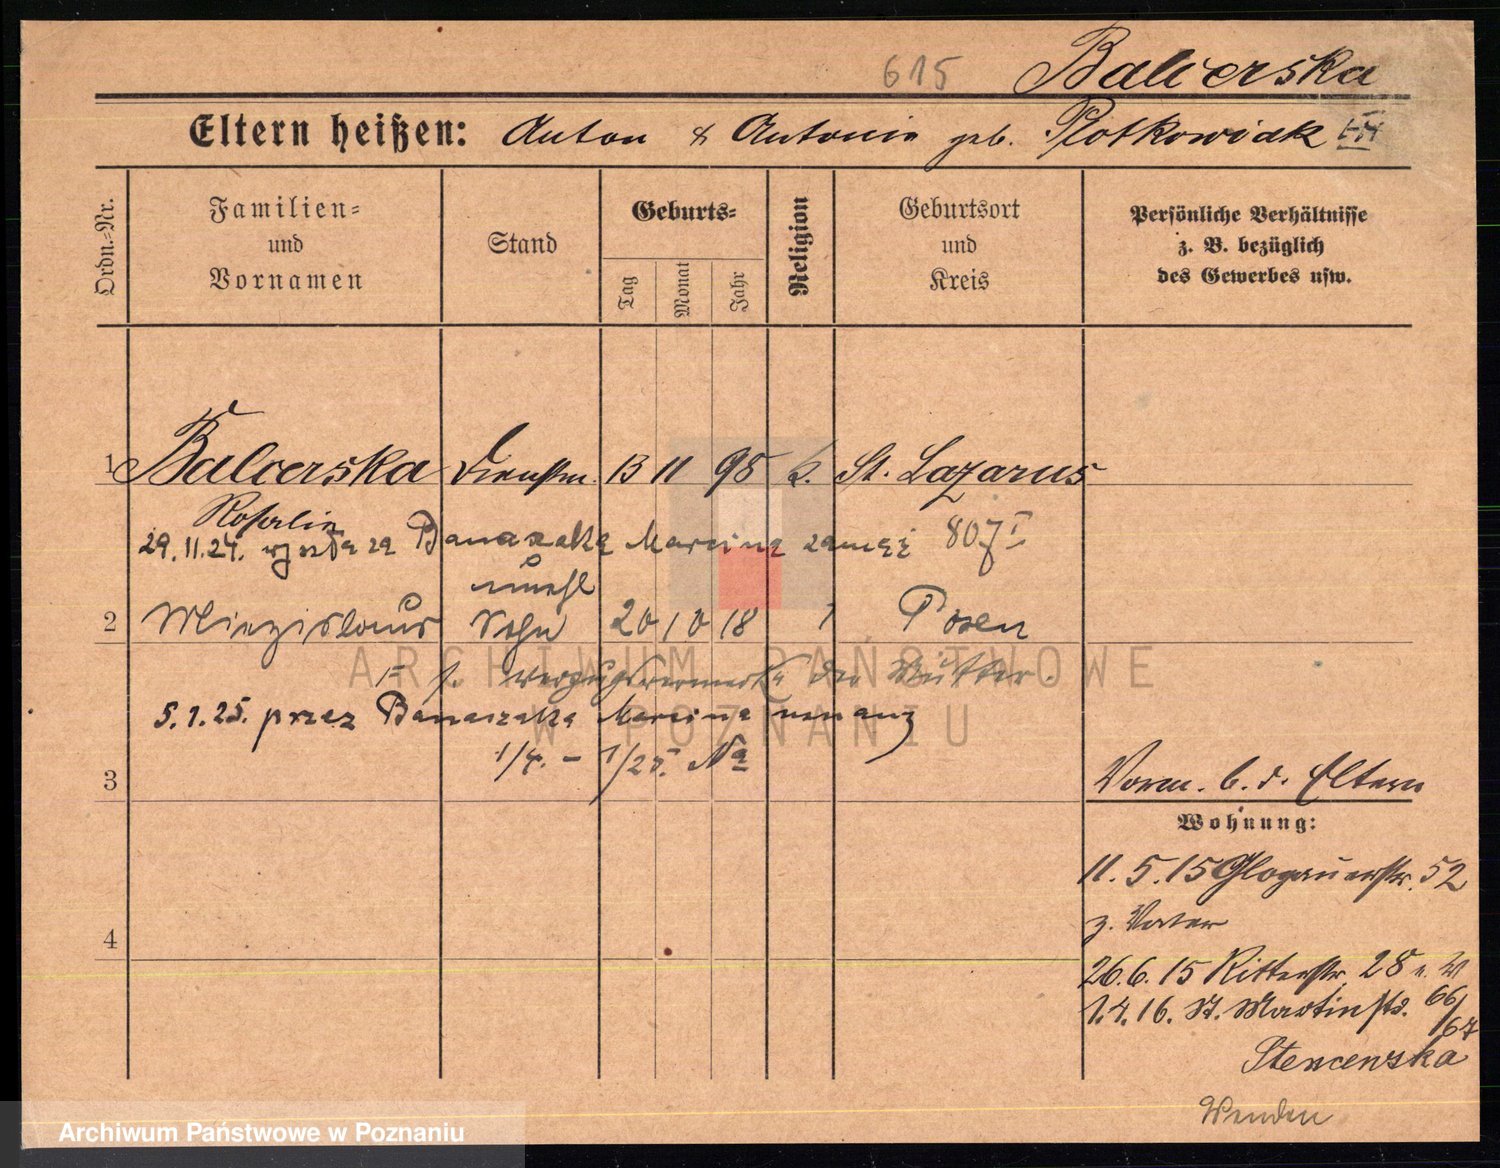 615 Balcerska
Eltern heißen: Anton & Antonie geb. Plotkowiak
Ordn.-Nr.
Familien-
und
Vornamen
Stand
Geburts-
Tag
Monat
Jahr
Religion
Geburtsort
und
Kreis
Persönliche Verhältnisse
z. B. bezüglich
des Gewerbes usw.
1 Balcerska Dienstm. 13 11 95 k. St. Lazarus
Rosalie
29.11.24. wyszła za Banaszaka Marcina zamęż 807
unehl
2 Miezislaus Sohn 20 10 18 Posen
s. Verzugsvermerk der Mutter.
5.1.25. przez Banaszaka Marcina uznany
1/4. - 1/25.
3
Vorm. b. d. Eltern
Wohnung:
11.5.15 Glogauerstr. 52
z. Vater
4
26.6.15 Ritterstr. 28
1.4.16. St. Martinstr. 66/67
Stencewska
Wenden
ARCHIWUM PAŃSTWOWE
W POZNANIU
Archiwum Państwowe w Poznaniu